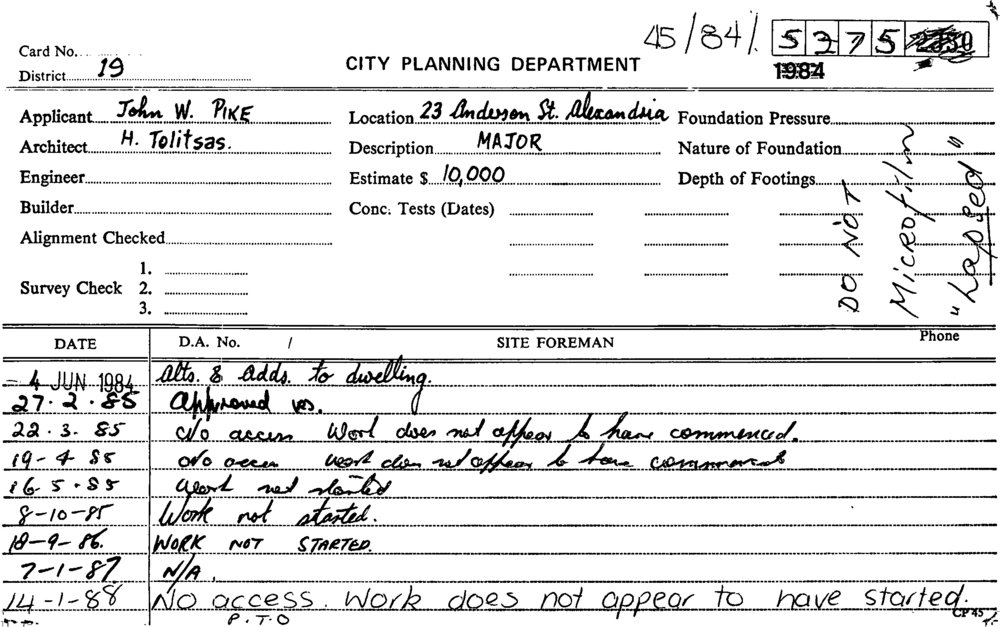 45/84/. 5275
1984
Card No.
District 19
CITY PLANNING DEPARTMENT
Applicant John W. PIKE
Location 23 Anderson St. Alexandria
Foundation Pressure
Architect H. Tolitsas.
Description MAJOR
Nature of Foundation
Engineer
Estimate $ 10,000
Depth of Footings
Builder
Conc. Tests (Dates)
Alignment Checked
Survey Check
1.
2.
3.
DO NOT
Microfilm
"Lapsed"
DATE D.A. No. / SITE FOREMAN Phone
- 4 JUN 1984 Alts. & Adds. to dwelling.
27.2.85 Approved
22.3.85 No access Work does not appear to have commenced.
19-4 85 No access work does not appear to have commenced
16 5.85 Work not started
8-10-85 Work not started.
18-9-86. WORK NOT STARTED.
7-1-87 N/A.
14-1-88 No access. Work does not appear to have started.
P.T.O
CP 45